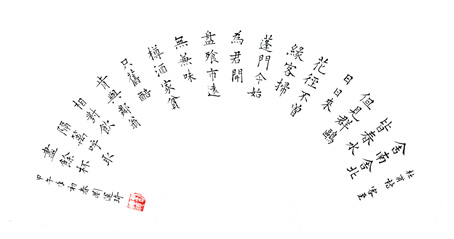 杜甫詩客至
舍南舍北
皆春水
但見群鷗
日日來
花徑不曾
緣客掃
蓬門今始
為君開
盤飧市遠
無兼味
樽酒家貧
只舊醅
肯與鄰翁
相對飲
隔籬呼取
盡餘杯
甲午年初春劉運